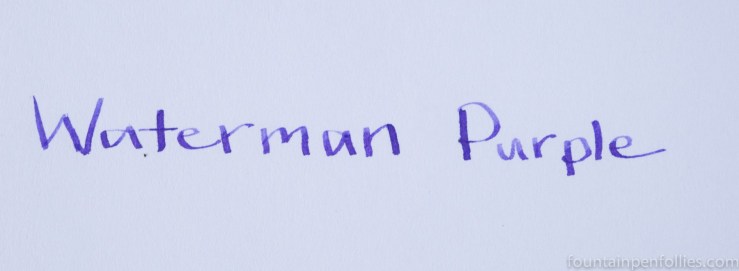 Waterman Purple
fountainpenfollies.com